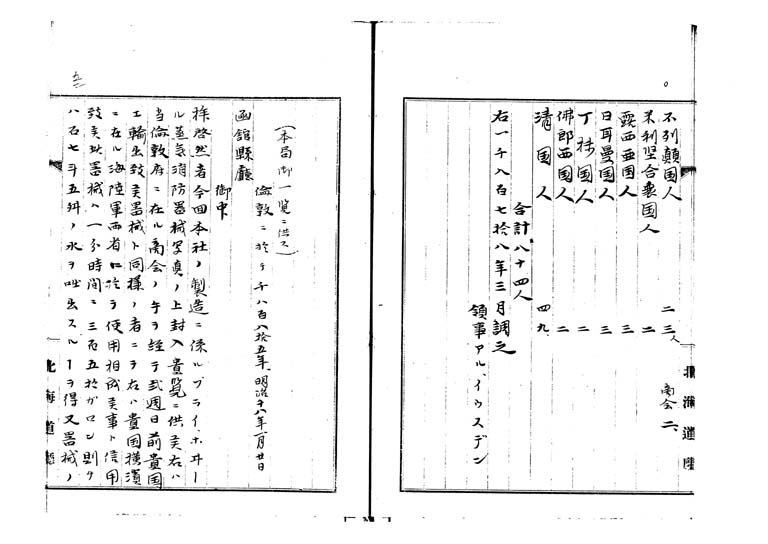 不列顛国人 二三人 商会 二、
米利堅合衆国人 二
露西亜国人 三
日耳曼国人 三
丁抹国人 二
佛郎西国人 二
清国人 四九
合計八十四人
右一千八百七拾八年三月調之
領事アル、イウスデン
北海道廳
(本局御一覧ニ供ス)
倫敦ニ於テ千八百八拾五年、明治十八年一月廿日
函館縣廳
御中
拝啓然者今回本社ノ製造ニ係ルブライ、ホヰー
ル蒸気消防器械写真ノ上封入貴覧ニ供美右ハ
当倫敦府ニ在ル商会ノ手ヲ経テ弐週日前貴国
エ輸出致美器械ト同様ノ者ニテ右ハ貴国横濱
ニ在ル海陸軍両省ニ於テ使用相成美事ト信用
致美此器械ハ一分時間ニ三百五拾ガロン則チ
八石七斗五舛ノ水ヲ吐出スルヿヲ得又器械ノ
北海道廳